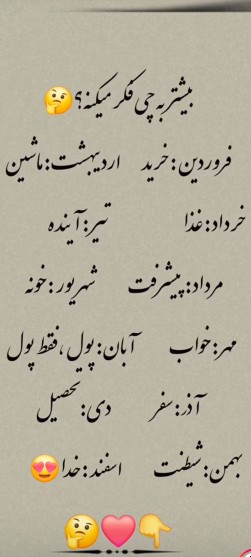 بیشتر به چی فکر میکنه؟🤔
فروردین: خرید اردیبهشت: ماشین
خرداد: غذا تیر: آینده
مرداد: پیشرفت شهریور: خونه
مهر: خواب آبان: پول ،فقط پول
آذر: سفر دی: تحصیل
بهمن: شیطنت اسفند: خدا😍
🤔❤️👇